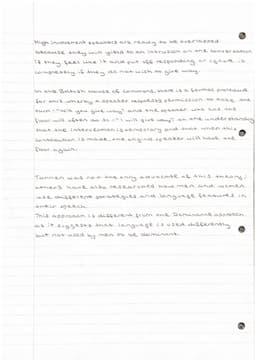 High involvement speakers are ready to be overlapped
because they will yield to an intrusion on the conversation
if they feel like it and put off responding or ignore it
completely if they do not wish to give way.
In the British House of Commons, there is a formal procedure
for this, whereby a speaker requests permission to take the
turn ("will you give way?") and the speaker who has the
floor will often do so ("I will give way") on the understanding
that the intervention is temporary and that when this
contribution is made the original speaker will have the
floor again.
Tannen was not the only advocate of this theory;
others have also researched how men and women
use different strategies and language features in
their speech.
This approach is different from the Dominance approach
as it suggests that language is used differently
but not used by men to be dominant.